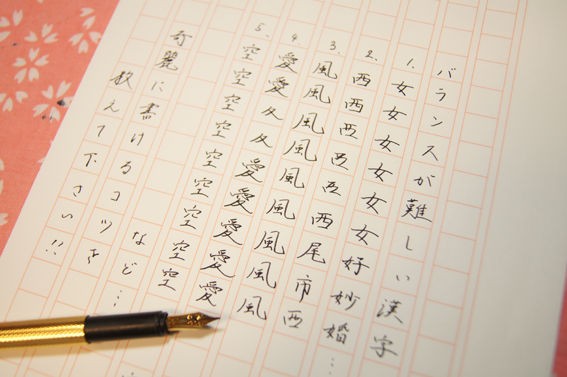 バランスが難しい漢字
1. 女女女女女女好妙婚…
2. 西西西西西西尾市西
3. 風風風風風風風風風
4. 愛愛夂夂愛愛愛愛愛
5. 空空空空空空空空空
奇麗に書けるコツを
など…
教えて下さい!!